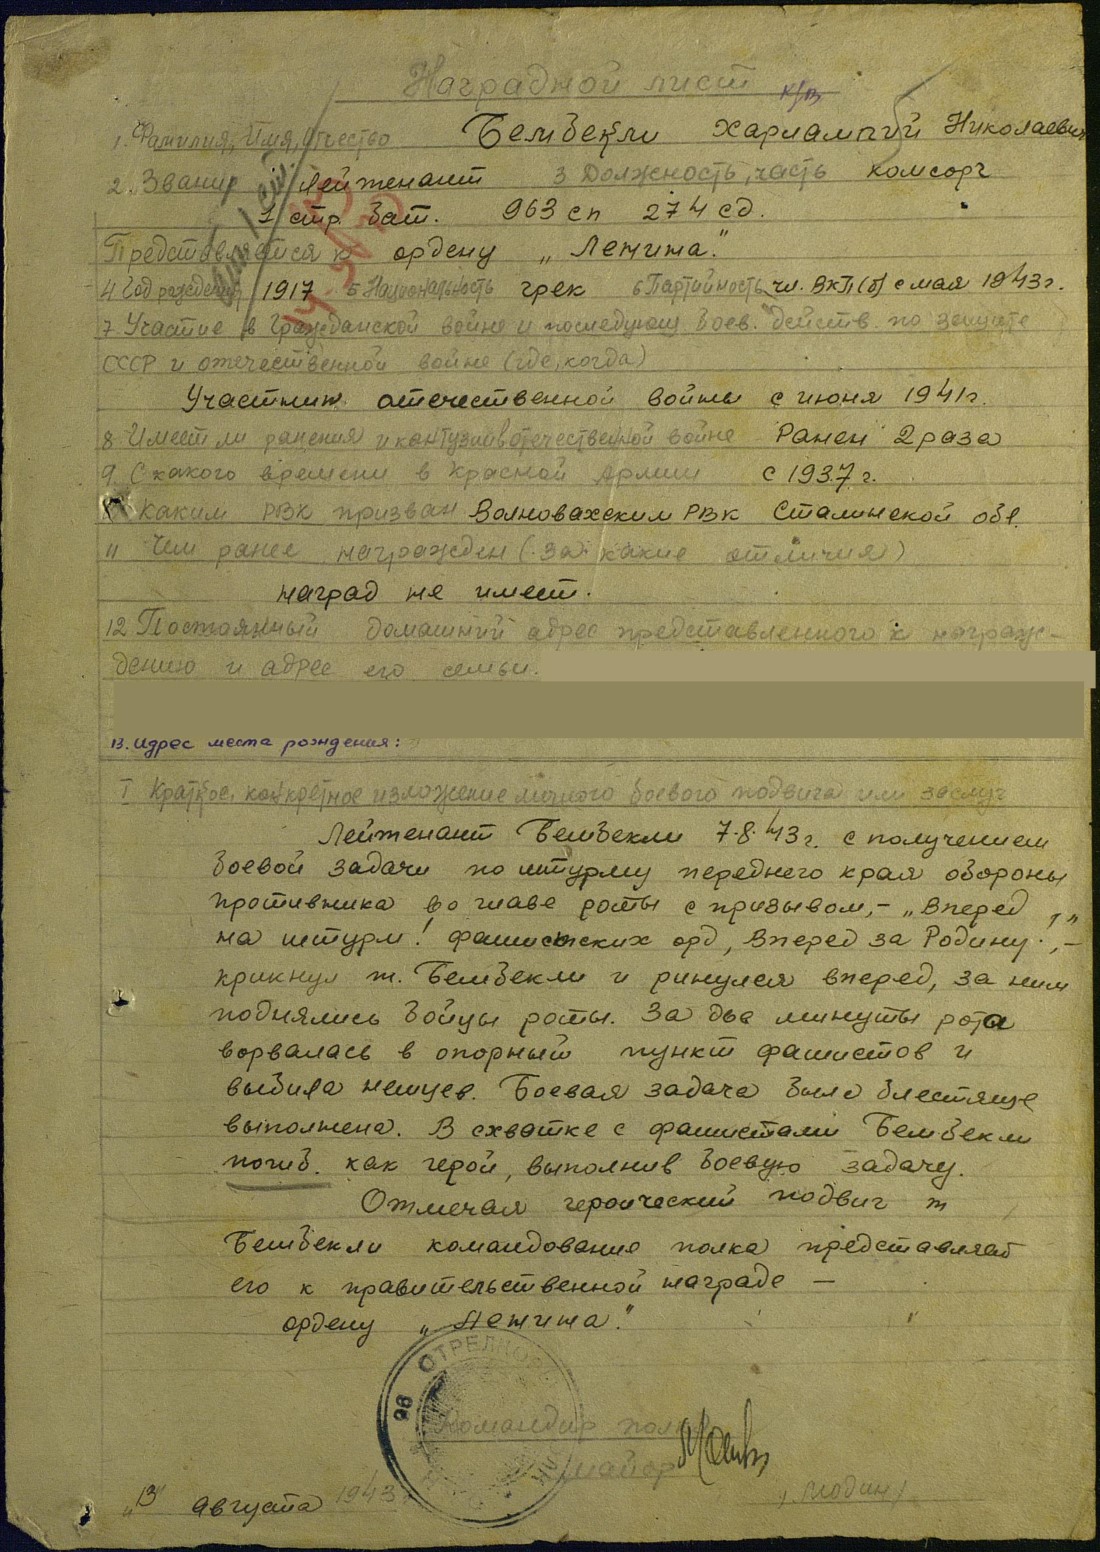 Наградной лист
1. Фамилия, Имя, отчество Бембекли Харлампий Николаевич
2. Звание лейтенант 3 Должность, часть комсорг
1 стр. бат. 963 сп 274 сд.
Представляется к ордену „Ленина."
4 Год рождения 1917 5 Национальность грек 6 Партийность чл. ВКП(б) с мая 1943 г.
7. Участие в Гражданской войне и последующ боев. действ. по защите
СССР и отечественной войне (где, когда)
Участник отечественной войны с июня 1941 г.
8 Имеет ли ранения и контузии в отечественной войне Ранен 2 раза
9. С какого времени в Красной Армии с 1937 г.
Каким РВК призван Волновахским РВК Сталинской обл.
11 Чем ранее награжден (за какие отличия)
наград не имеет.
12 Постоянный домашний адрес представленного к награж-
дению и адрес его семьи.
13. Адрес места рождения:
I Краткое, конкретное изложение личного боевого подвига или заслуг
Лейтенант Бембекли 7.8.43 г. с получением
боевой задачи по штурму переднего края обороны
противника во главе роты с призывом,- „Вперед
на штурм! фашистских орд, Вперед за Родину!",-
крикнул т. Бембекли и ринулся вперед, за ним
поднялись бойцы роты. За два минуты рота
ворвалась в опорный пункт фашистов и
выбила немцев. Боевая задача была блестяще
выполнена. В схватке с фашистами Бембекли
погиб. как герой, выполнив боевую задачу.
Отмечая героический подвиг т
Бембекли командование полка представляет
его к правительственной награде –
ордену „Ленина."
СТРЕЛКОВ
Командир полка
майор
"13" августа 1943